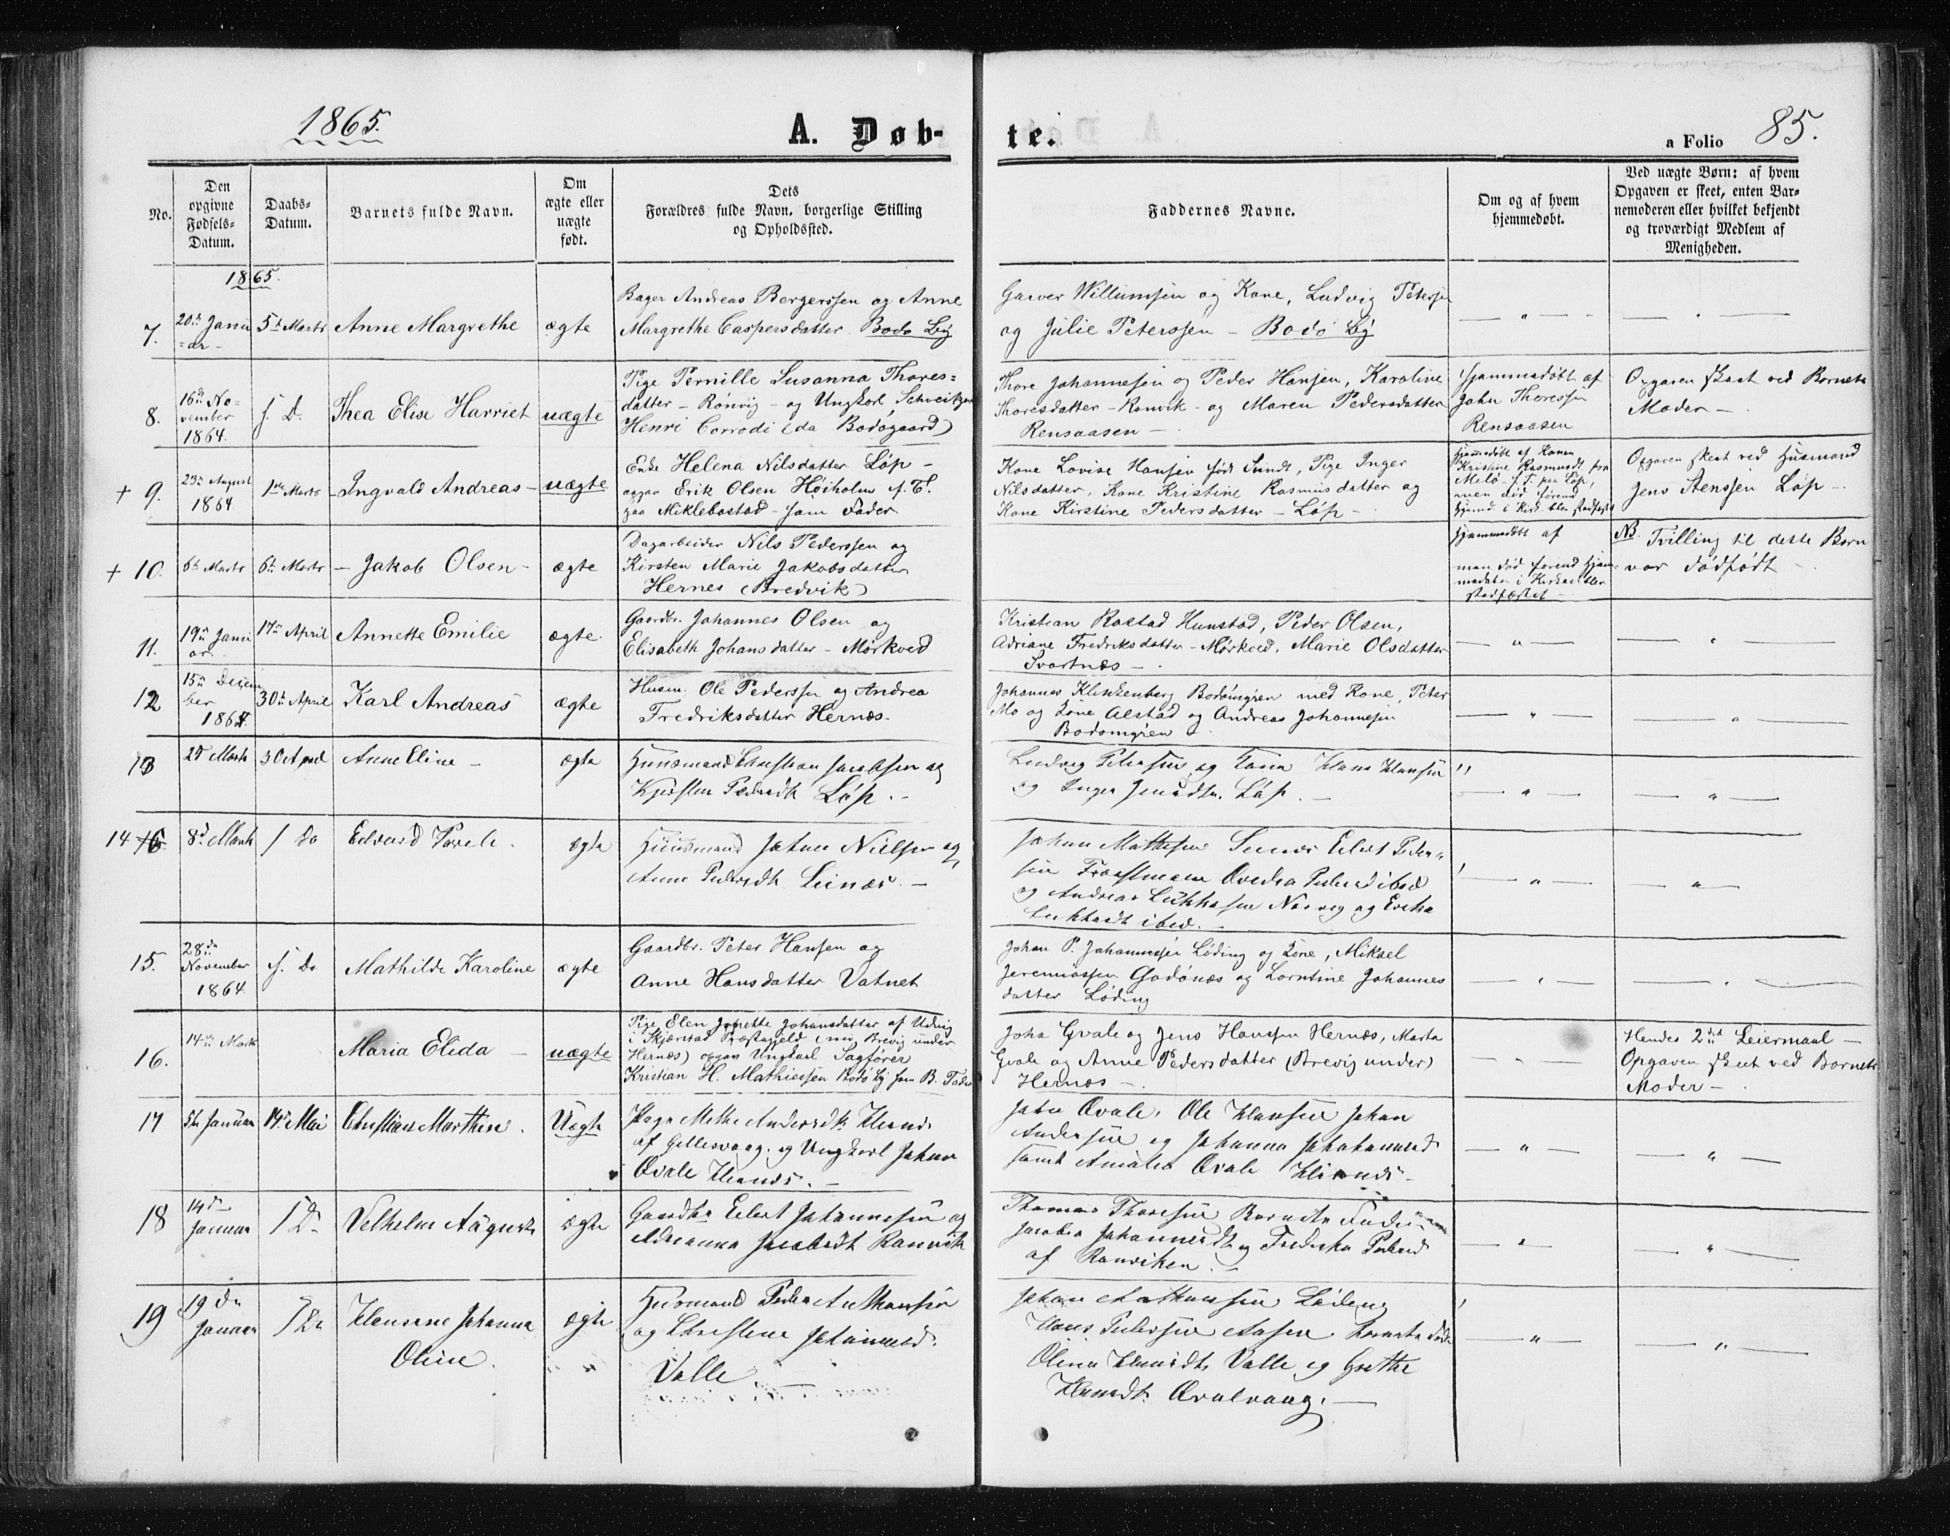 1865.
A. Døb-
te.
a Folio 85.
No.
Den opgivne Fødsels-Datum.
Daabs-Datum.
Barnets fulde Navn.
Om ægte eller uægte født.
Dets Forældres fulde Navn, borgerlige Stilling og Opholdssted.
Faddernes Navne.
Om og af hvem hjemmedøbt.
Ved uægte Børn: af hvem Opgaven er skeet, enten Barnemoderen eller hvilket bekjendt og troværdigt Medlem af Menigheden.
1865.
7. 20de Janu=ar 5te Marts Anne Margrethe ægte
Bager Andreas Bergerssen og Anne
Margrethe Caspersdatter Bodø By
Garver Willumsen og Kone, Ludvig Peterssen
og Julie Peterssen – Bodø By
8. 16de November 1864. s. D. Thea Elise Harriet uægte
Pige Pernille Susanna Thores=
datter – Rønvig – og Ungkarl Schveitzer
Henri Corrodi (da Bodøgaard)
Thore Johannesen og Peder Hansen, Karoline
Thoresdatter – Rønvik – og Maren Pedersdatter
Rensaasen –
Hjemmedøbt af
John Thoressen
Rensaasen
Opgaven skeet ved Barnets
Moder –
+ 9. 23de August 1864 1ste Marts Ingvald Andreas uægte
Enke Helena Nilsdatter Løp –
opgav Erik Olsen Høiholm f. T.
paa Miklebostad – som Fader
Kone Lovise Hansen født Sundt, Pige Inger
Nilsdatter, Kone Kristine Rasmusdatter og
Kone Kirstine Pedersdatter – Løp –
Hjemmedøbt af Konen
Kristine Rasmusdt. fra
f. T. paa Løp,
men død førend
Opgaven skeet ved Husmand
Jens Stenssen Løp –
+ 10. 6te Marts 6te Marts – Jakob Olsen – ægte
Dagarbeider Nils Pederssen og
Kirsten Marie Jakobsdatter
Hernes (Bredvik)
Hjemmedøbt af
men død førend Hjem=
medaaben i Kirken blev
stadfæstet –
NB. Tvilling til dette Barn
var dødfødt –
11. 19de Janu ar 17de April Annette Emilie ægte
Gaardbr. Johannes Olsen og
Elisabeth Johansdatter – Mørkved
Kristian Rostad Hunstad, Peder Olsen,
Adriane Fredriksdatter – Mørkved, Marie Olsdatter
Svartnæs –
12 15de Decem ber 1864. 30te April Karl Andreas ægte
Husm. Ole Pederssen og Andrea
Fredriksdatter Hernæs.
Johannes Klinkenberg Bodømyren med Kone, Peter
Mo og Kone Alstad og Andreas Johannesen
Bodømyren
13 2d Marts 30 April Anne Eline – ægte
Huusmand Christian Jacobsen og
Kjersten Pedersdt. Løp. –
Ludvig Petersen og Kone Hans Hansen
og Inger Jensdtr. Løp. –
14 8d Marts s Do Edvard Povele. ægte
Huusmand Johan Nielsen og
Anne Pedersdt. Seines. –
Johan Mathisen Seines Eilert Peder=
sen
og Andreas
ibid. –
15. 28de November 1864. s. Do Mathilde Karoline ægte
Gaardbr. Peter Hansen og
Anne Hansdatter Vatnet
Johan P. Johannessen Løding og Kone, Mikael
Jeremiassen Godønæs og Lorntine Johannes
datter Løding
16. 14de Marts Maria Elida – uægte
Pige Elen Johansdatter af Udvig
i Skjerstad Præstegjeld (nu Brevig under
Hernæs) opgav Ungkarl Sagfører
Kristian H. Mathiessen Bodø By som B. Fader
Joha Qvale og Jens Hansen Hernæs, Marta
Qvale og Anne Pedersdatter (Brevig under)
Hernæs –
Hendes 2det Leiermaal –
Opgaven skeet ved Barnets
Moder –
17 5te Januar 14de Mai Christian Marthin. Uægte
Pige Methe Andersdt.
af Gillesvaag. og Ungkarl Johan
Qvale
Johan Qvale, Ole Hansen Johan
Andersen og Johanna
samt Amalia Qvale
18 14de Januar s D Velhelm August ægte
Gaardbr. Eilert Johannesen og
Adrianna Jacobsdt Rønvik
Thomas Thoresen
Jacobia Johannesdt og Fredrikka Pedersd
af Rønviken. –
19 19de Januar s D Hansine Johanna
Oline. ægte
Huusmand Peder Anthonsen
og Christine Johannesd.
Valle
Johan Løding
Hans Pedersen Aasen
Olina Hansdt. Valle og Grethe
Hansdt. Qvalvaag. –